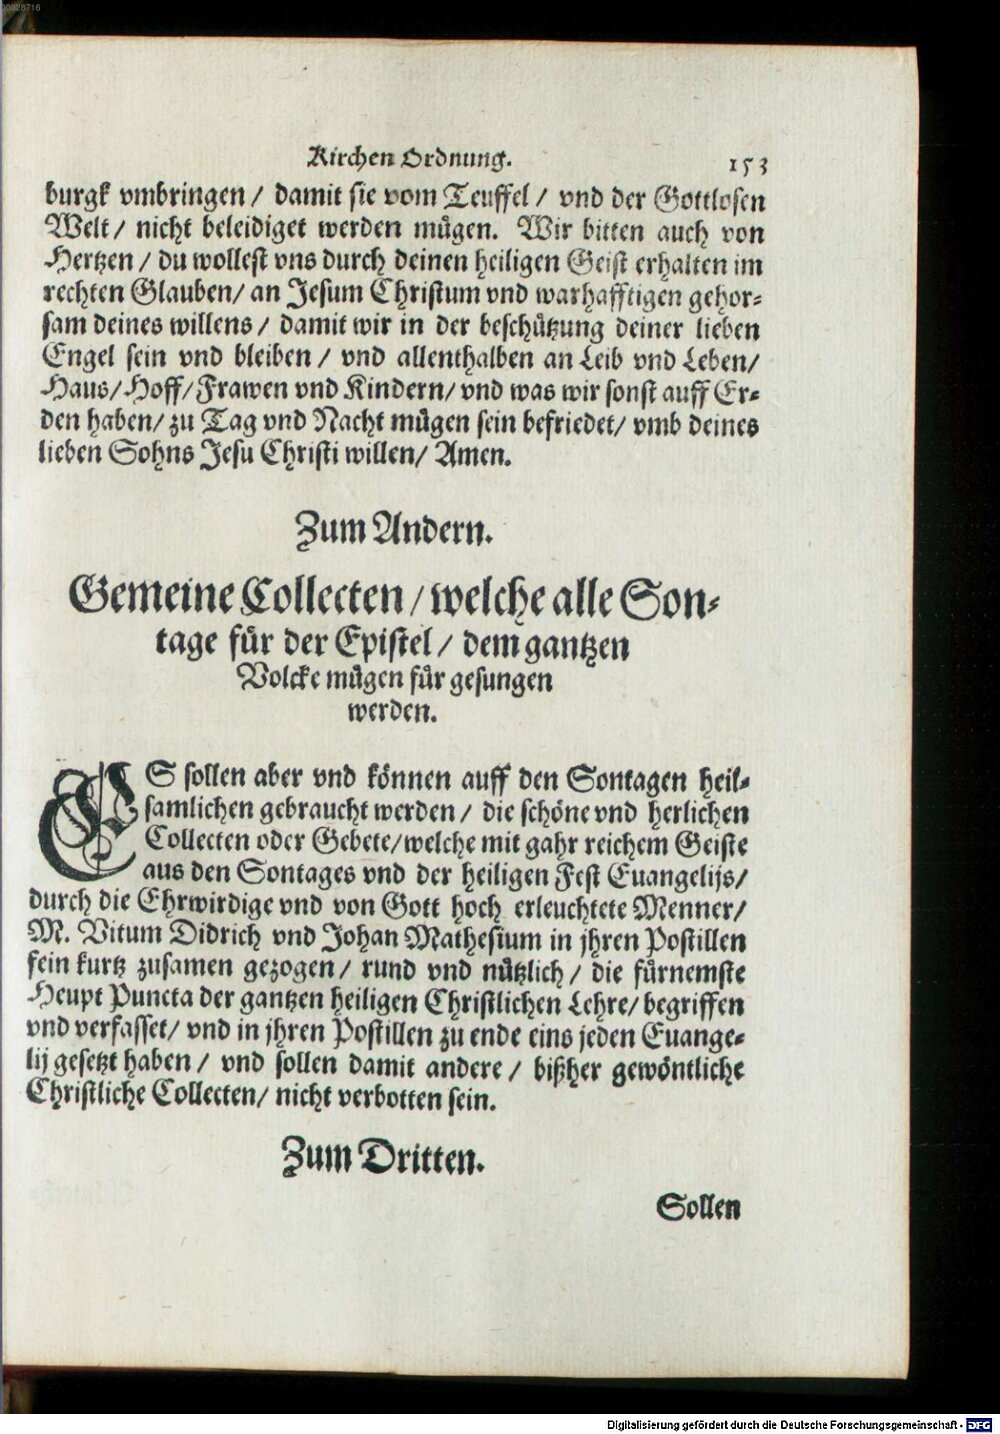 00028716
Kirchen Ordnung. 153
burgk vmbringen / damit sie vom Teuffel / vnd der Gottlosen
Welt / nicht beleidiget werden mügen. Wir bitten auch von
Hertzen / du wollest vns durch deinen heiligen Geist erhalten im
rechten Glauben / an Jesum Christum vnd warhafftigen gehor-
sam deines willens / damit wir in der beschützung deiner lieben
Engel sein vnd bleiben / vnd allenthalben an Leib vnd Leben /
Haus / Hoff / Frawen vnd Kindern / vnd was wir sonst auff Er-
den haben / zu Tag vnd Nacht mügen sein befriedet / vmb deines
lieben Sohns Jesu Christi willen / Amen.
Zum Andern.
Gemeine Collecten / welche alle Son-
tage für der Epistel / dem gantzen
Volcke mügen für gesungen
werden.
ES sollen aber vnd können auff den Sontagen heil-
samlichen gebraucht werden / die schöne vnd herlichen
Collecten oder Gebete / welche mit gahr reichem Geiste
aus den Sontages vnd der heiligen Fest Euangelijs /
durch die Ehrwirdige vnd von Gott hoch erleuchtete Menner /
M. Vitum Didrich vnd Johan Mathesium in jhren Postillen
fein kurtz zusamen gezogen / rund vnd nützlich / die fürnemste
Heupt Puncta der gantzen heiligen Christlichen Lehre / begriffen
vnd verfasset / vnd in jhren Postillen zu ende eins jeden Euange-
lij gesetzt haben / vnd sollen damit andere / bißher gewöntliche
Christliche Collecten / nicht verbotten sein.
Zum Dritten.
Sollen
Digitalisierung gefördert durch die Deutsche Forschungsgemeinschaft - DFG